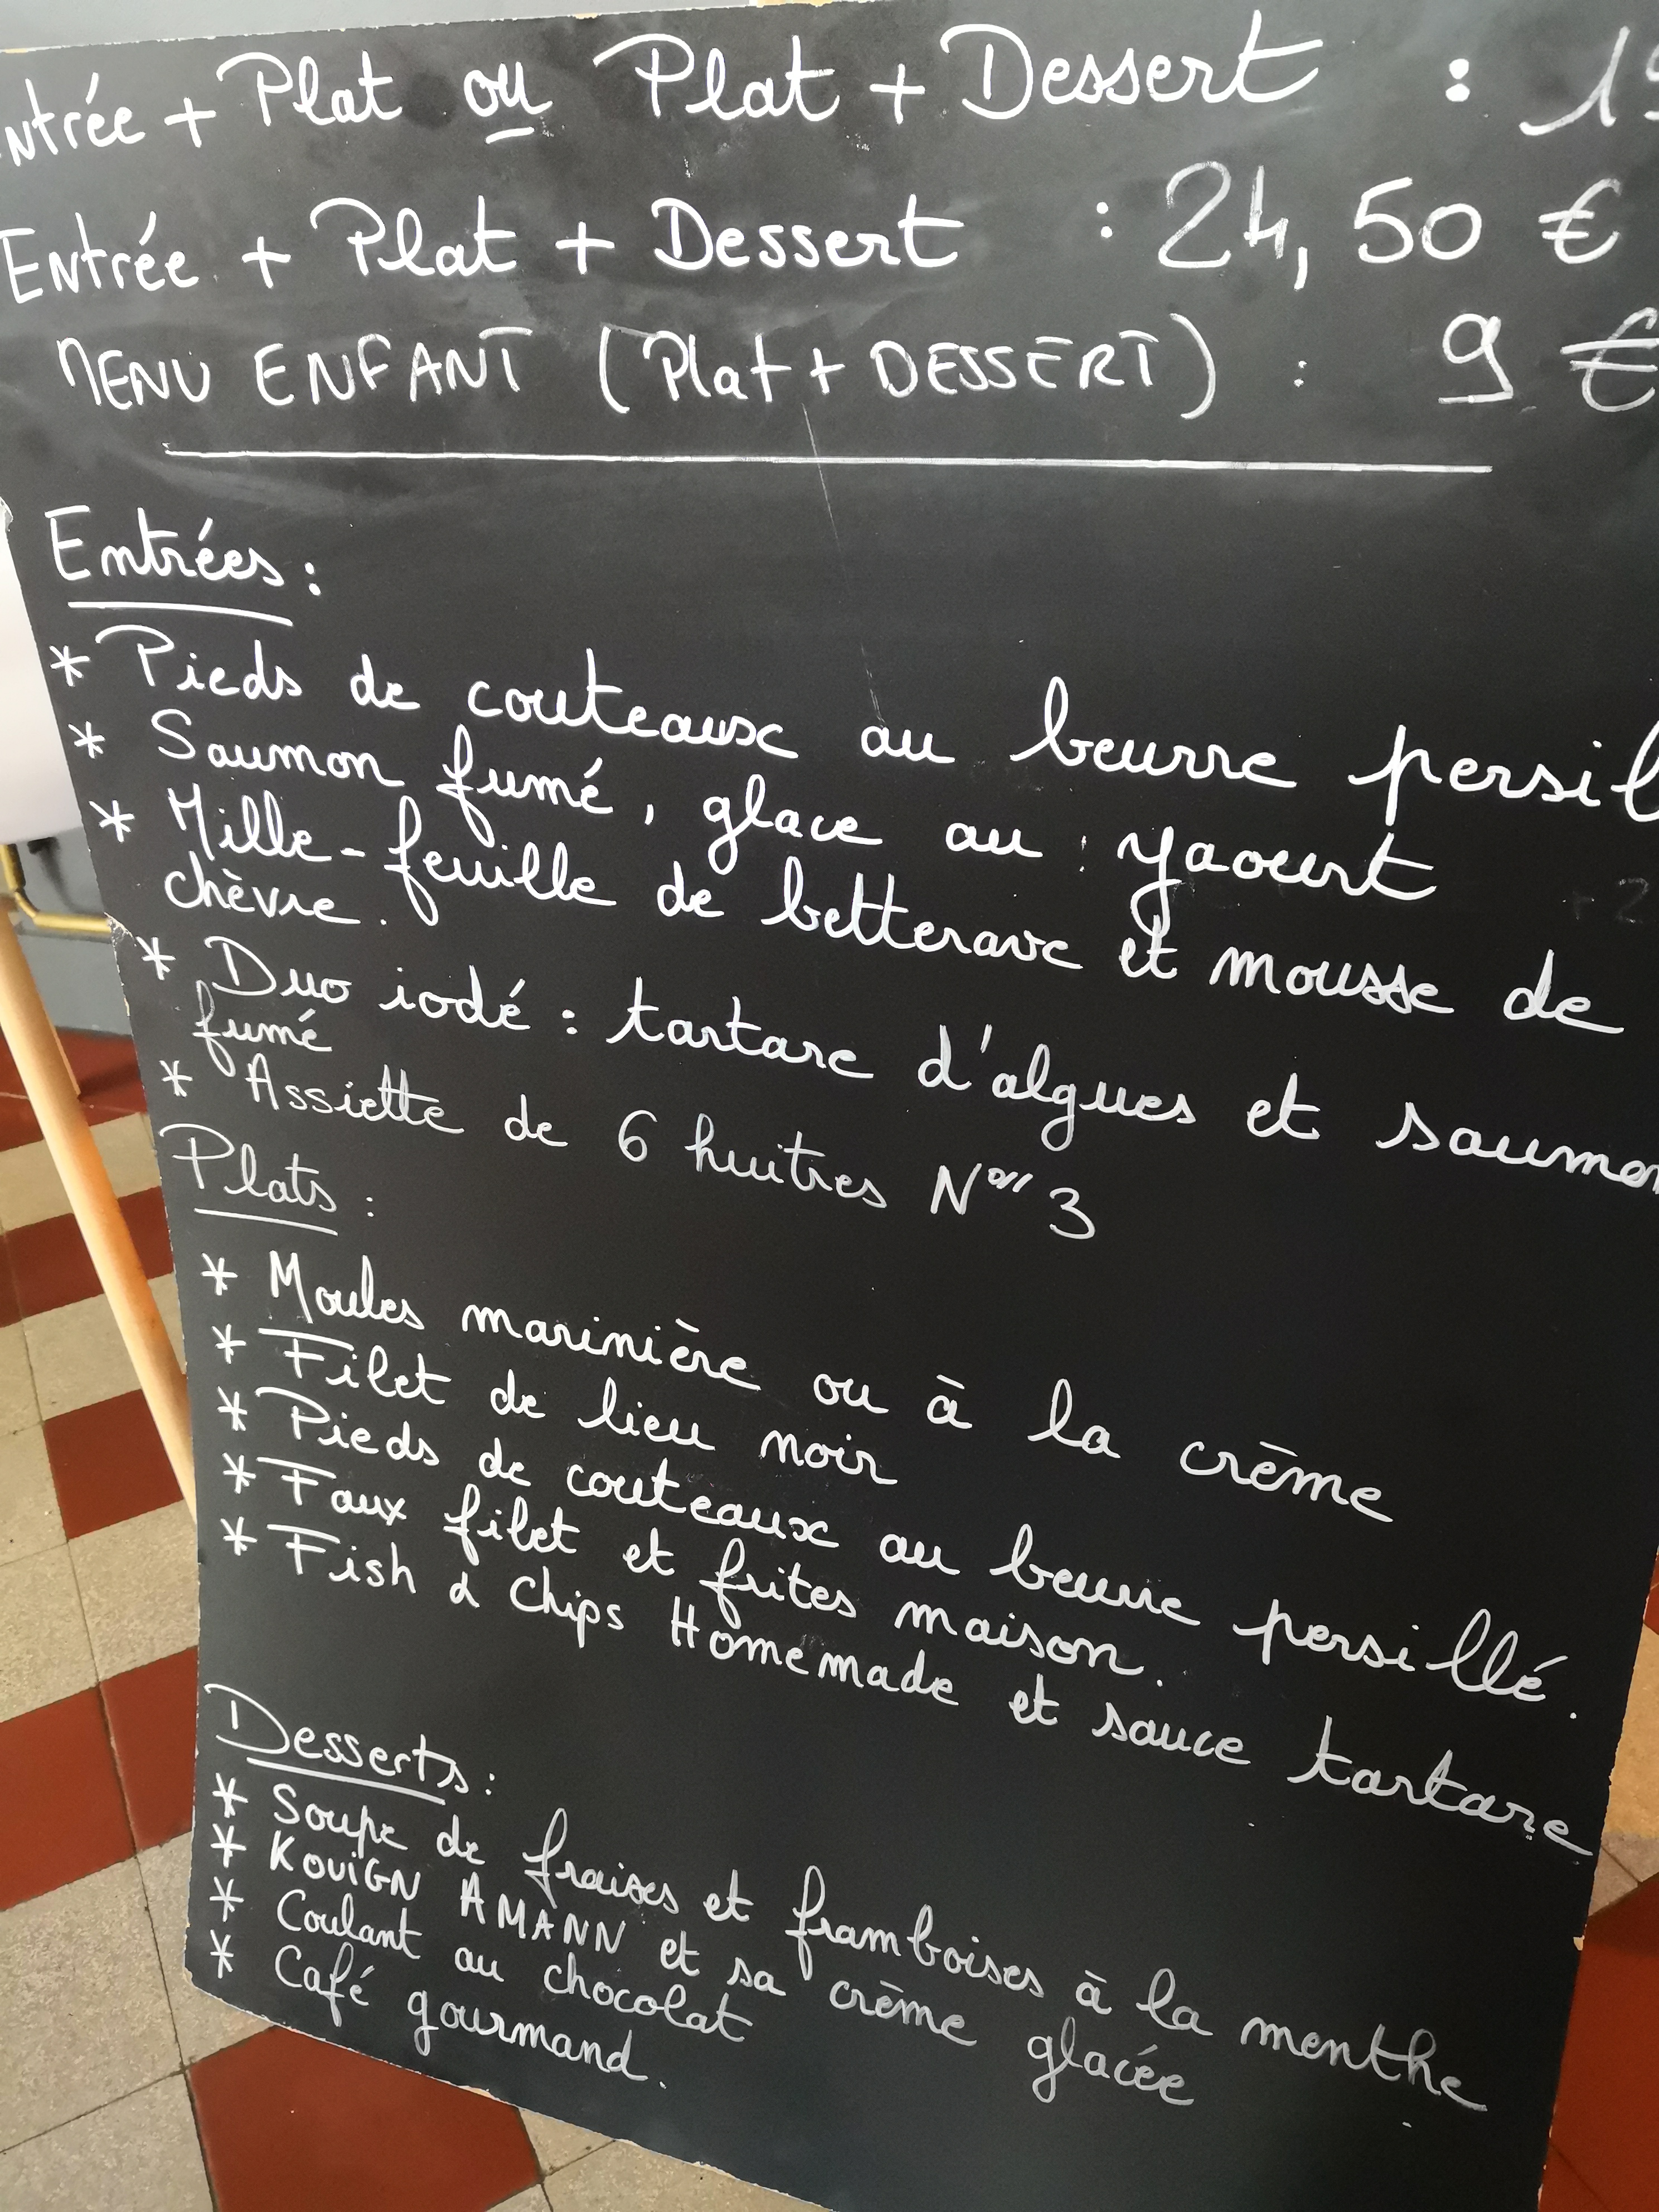 ntrée + Plat ou Plat + Dessert : 19
Entrée + Plat + Dessert : 24,50 €
MENU ENFANT (Plat + DESSERT) : 9 €
Entrées :
* Pieds de couteaux au beurre persil
* Saumon fumé, glace au yaourt
* Mille-feuille de betterave et mousse de
chèvre.
* Duo iodé : tartare d'algues et saumon
fumé
* Assiette de 6 huitres N° 3
Plats :
* Moules marinière ou à la crème
* Filet de lieu noir
* Pieds de couteaux au beurre persillé.
* Faux filet et frites maison.
* Fish & Chips Homemade et sauce tartare
Desserts :
* Soupe de fraises et framboises à la menthe
* KOUIGN AMANN et sa crème glacée
* Coulant au chocolat
* Café gourmand.